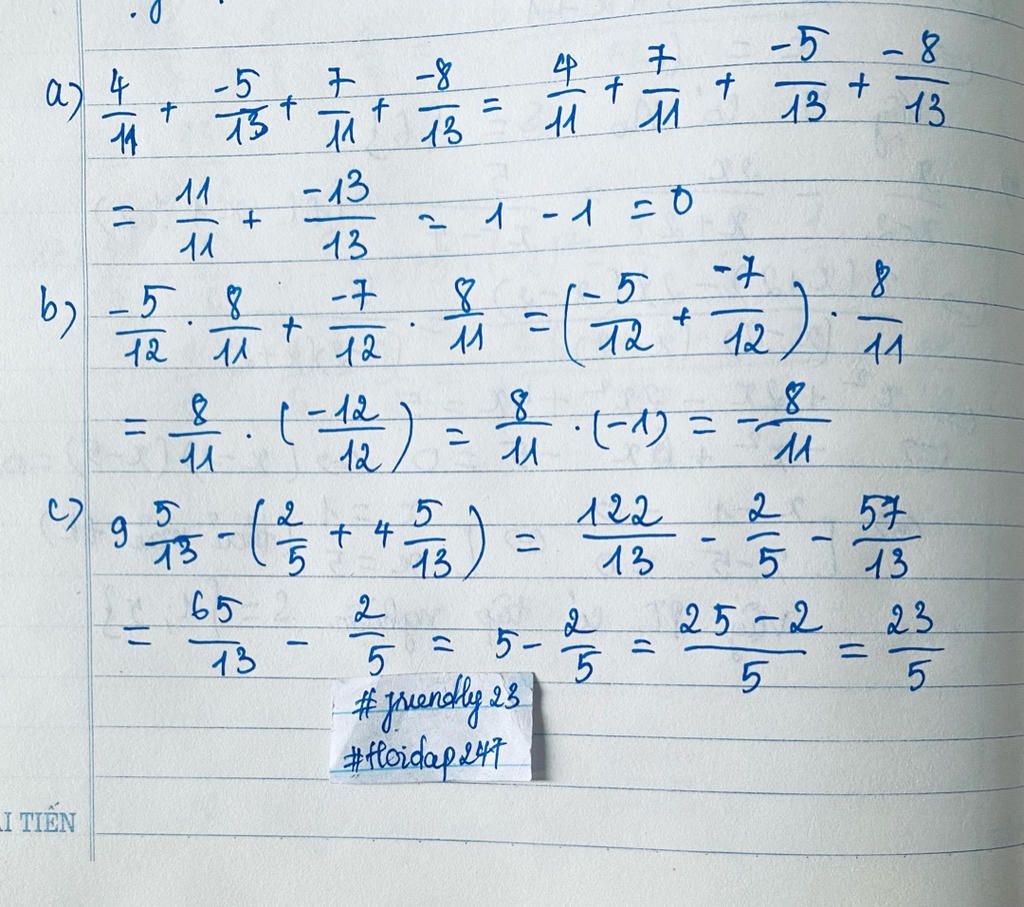 a) 4/11 + -5/13 + 7/11 + -8/13 = 4/11 + 7/11 + -5/13 + -8/13
= 11/11 + -13/13 = 1 - 1 = 0
b) -5/12 . 8/11 + -7/12 . 8/11 = (-5/12 + -7/12) . 8/11
= 8/11 . (-12/12) = 8/11 . (-1) = -8/11
c) 9 5/13 - (2/5 + 4 5/13) = 122/13 - 2/5 - 57/13
= 65/13 - 2/5 = 5 - 2/5 = 25 - 2/5 = 23/5
#friendly23
#Hoidap247
I TIẾN